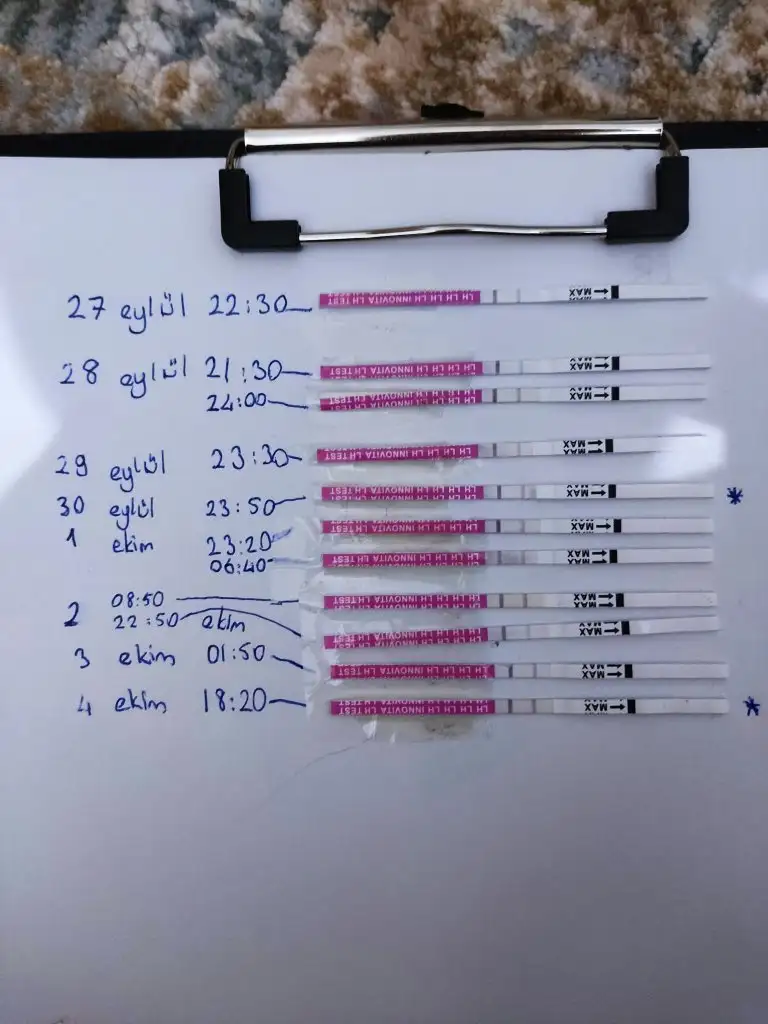 27 eylül 22:30
LH LH LH INNOVITA LH TEST
MAX
28 eylül 21:30
LH LH LH INNOVITA LH TEST
MAX
24:00
LH LH LH INNOVITA LH TEST
MAX
29 eylül 23:30
LH LH LH INNOVITA LH TEST
MAX
30 eylül 23:50
LH LH LH INNOVITA LH TEST
MAX
*
1 ekim 23:20
LH LH LH INNOVITA LH TEST
MAX
06:40
LH LH LH INNOVITA LH TEST
MAX
2 08:50
LH LH LH INNOVITA LH TEST
MAX
22:50 ekim
LH LH LH INNOVITA LH TEST
MAX
3 ekim 01:50
LH LH LH INNOVITA LH TEST
MAX
4 ekim 18:20
LH LH LH INNOVITA LH TEST
MAX
*